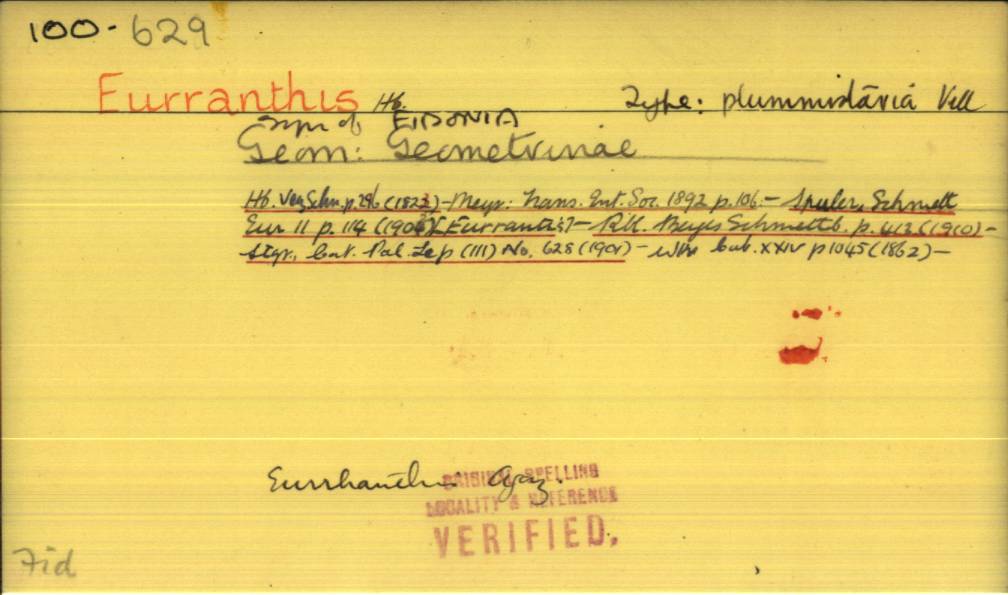 100-629
Eurranthis Hb. Type: plummistaria Vill
Syn of EIDONIA
Geom: Geometrinae
Hb. Verz Schm. p. 296 (1823) - Meyr: Trans. Ent. Soc. 1892 p. 106. - Spuler, Schmett
Eur II p. 114 (1903) [Eurrantis] - Rbl. Berges Schmettb. p. 413 (1910) -
Stgr., Cat. Pal. Lep (III) No. 628 (1901) - Wkr Cat. XXIV p 1045 (1862) -
Eurrhanthis Agaz.
ORIGINAL SPELLING
LOCALITY & REFERENCE
VERIFIED.
Fid